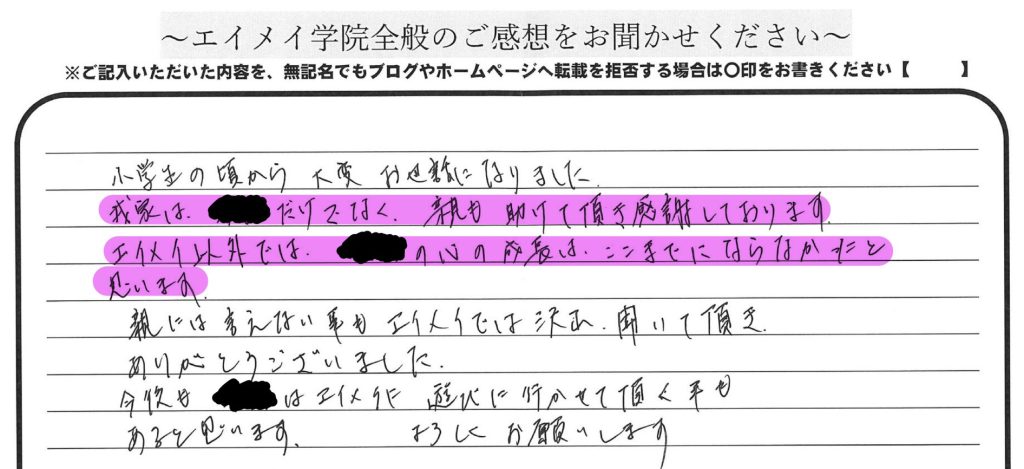 ～エイメイ学院全般のご感想をお聞かせください～
※ご記入いただいた内容を、無記名でもブログやホームページへ転載を拒否する場合は〇印をお書きください【　　　】
小学生の頃から 大変 お世話になりました.
我家は、だけでなく、親も 助けて頂き感謝しております.
エイメイ以外では、の心の成長は、ここまでにならなかったと
思います.
親には 言えない事も エイメイでは 沢山、聞いて頂き.
ありがとうございました.
今後も はエイメイに 遊びに行かせて頂く事も
あると思います. よろしくお願いします